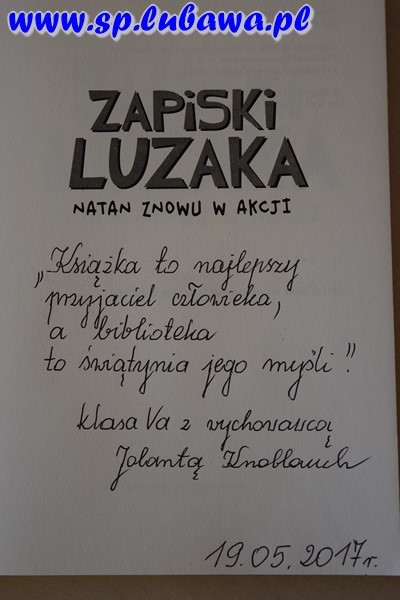 www.sp.lubawa.pl
ZAPiSKi
LUZAKA
NATAN ZNOWU W AKCJI
„Książka to najlepszy
przyjaciel człowieka,
a biblioteka
to świątynia jego myśli".
klasa Va z wychowawcą
Jolantą Knoblauch
19.05.2017r.